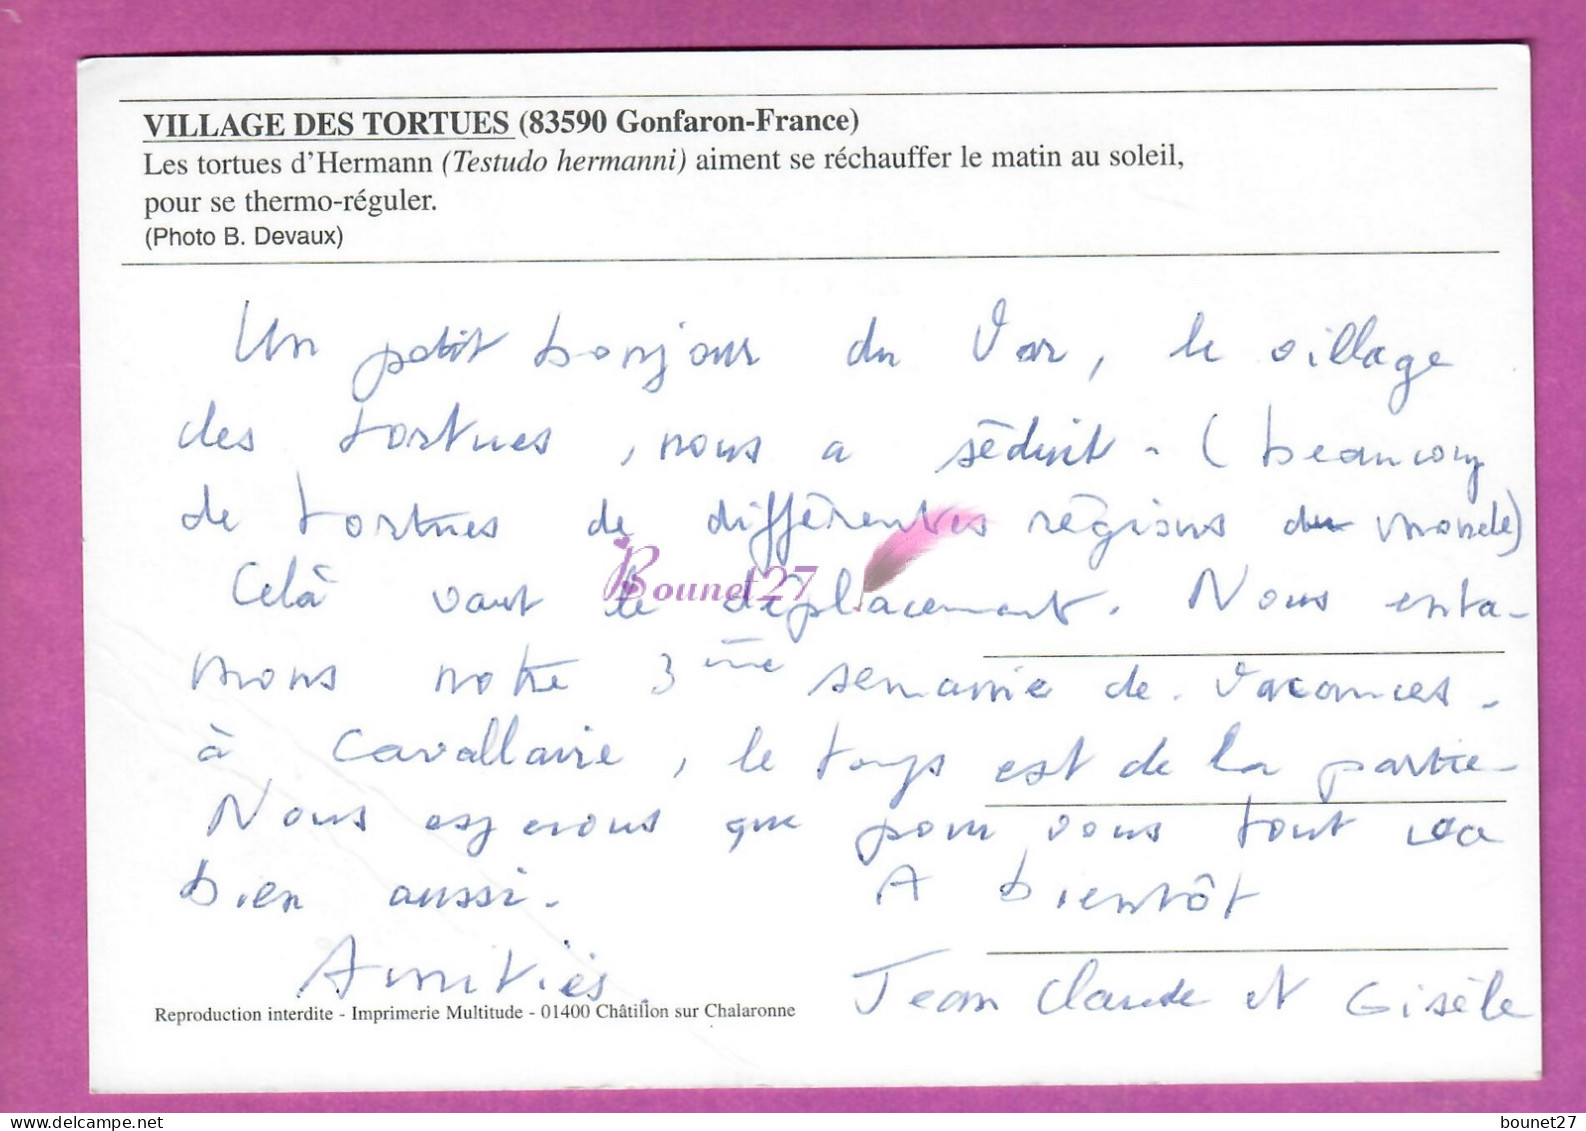 VILLAGE DES TORTUES (83590 Gonfaron-France)
Les tortues d'Hermann (Testudo hermanni) aiment se réchauffer le matin au soleil,
pour se thermo-réguler.
(Photo B. Devaux)
Un petit bonjour du Var, le village
des tortues, nous a séduit - (beaucoup
de tortues de différentes régions du monde)
Celà vaut le déplacement. Nous enta-
mons notre 3ème semaine de vacances -
à Cavallaire, le temps est de la partie -
Nous esperons que pour vous tout va
bien aussi. A bientôt
Amitiés Jean Claude et Gisèle
Reproduction interdite - Imprimerie Multitude - 01400 Châtillon sur Chalaronne
Bounet27
delcampe.net
bounet27